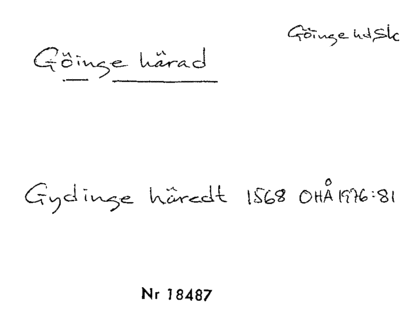 Göinge hd, Sk
Göinge härad
Gydinge häredt 1568 OHÅ 1976:81
Nr 18487